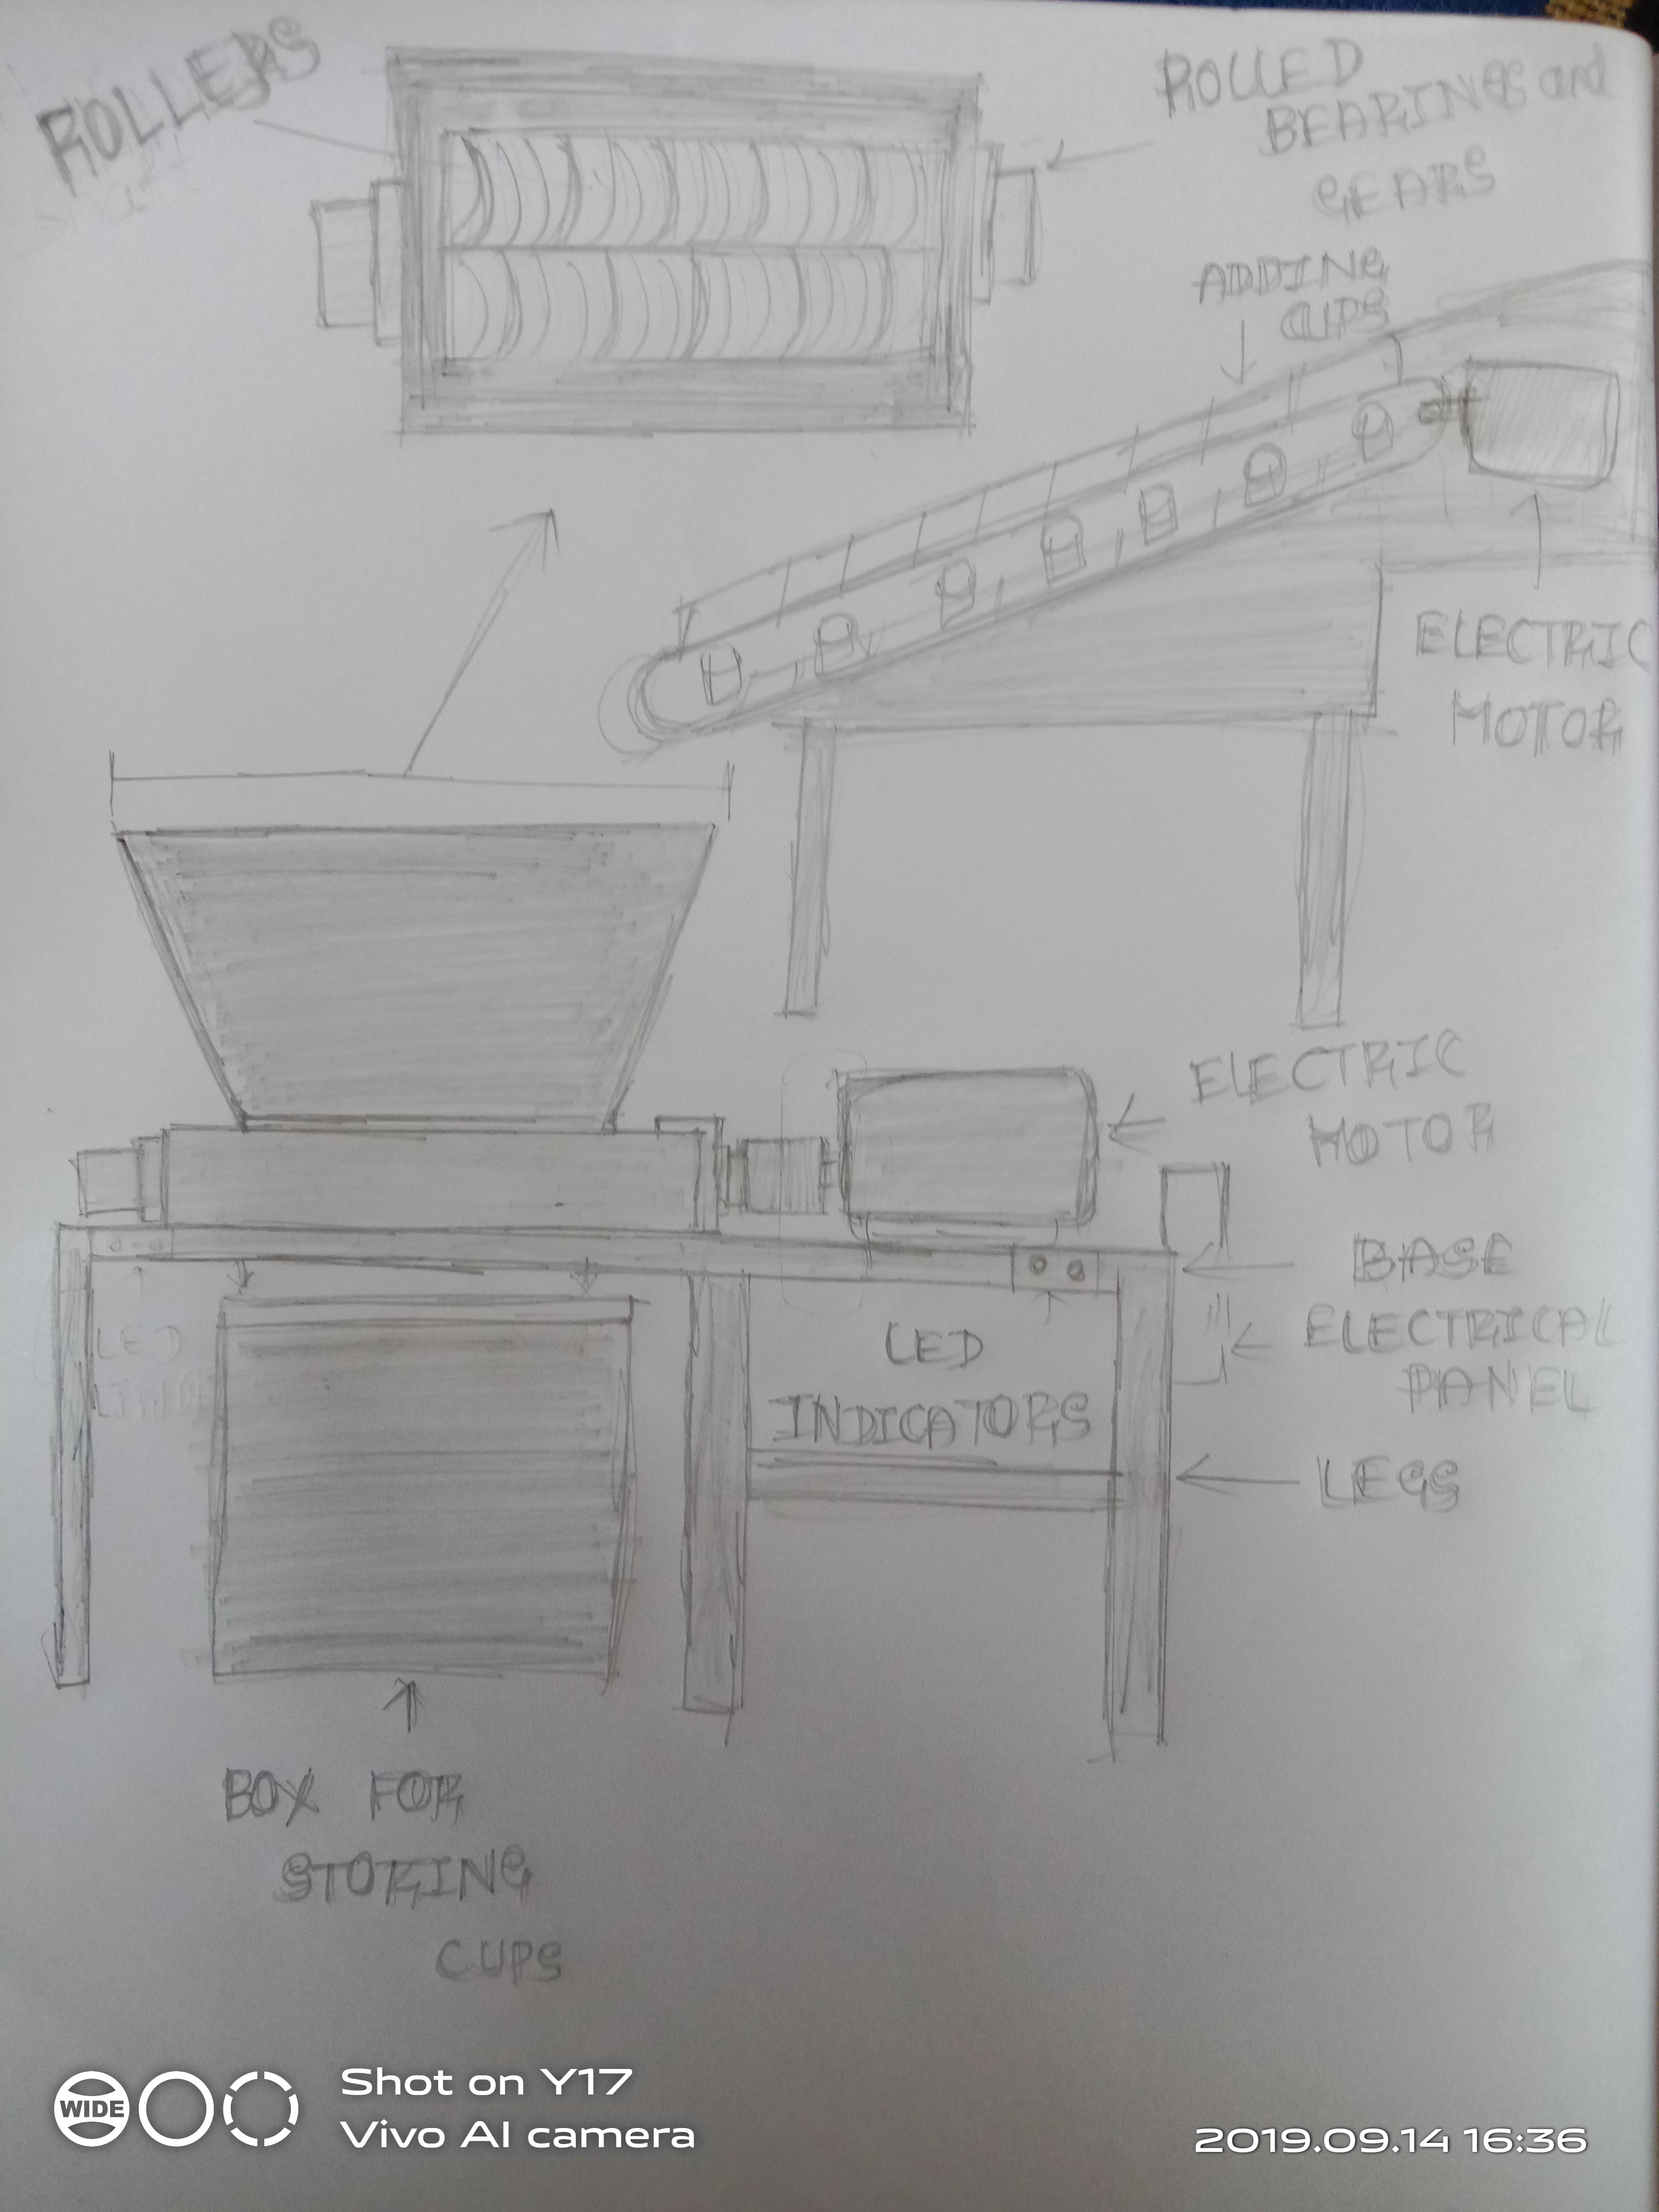 ROLLERS
ROLLED
BEARINGS and
GEARS
ADDING
CUPS
ELECTRIC
MOTOR
ELECTRIC
MOTOR
BASE
ELECTRICAL
PANEL
LED
INDICATORS
LEGS
LED
BOX FOR
STORING
CUPS
WIDE
Shot on Y17
Vivo AI camera
2019.09.14 16:36